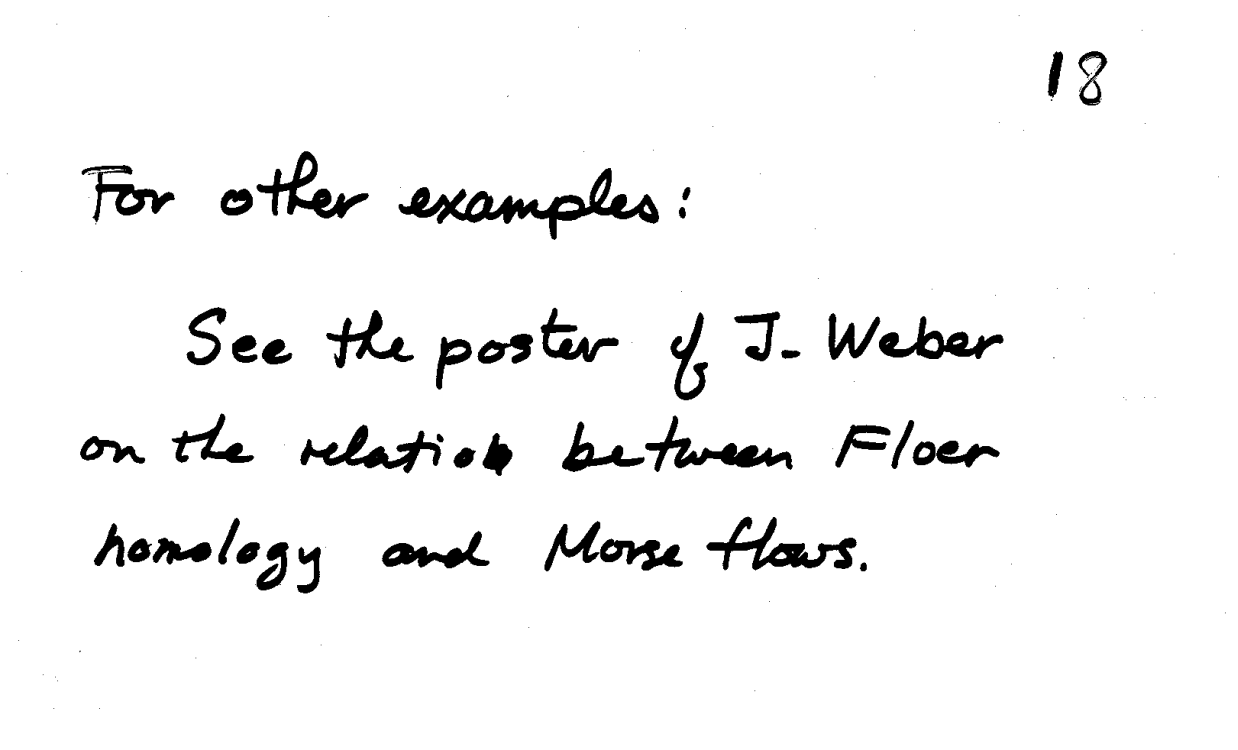 18
For other examples:
See the poster of J. Weber
on the relation between Floer
homology and Morse flows.